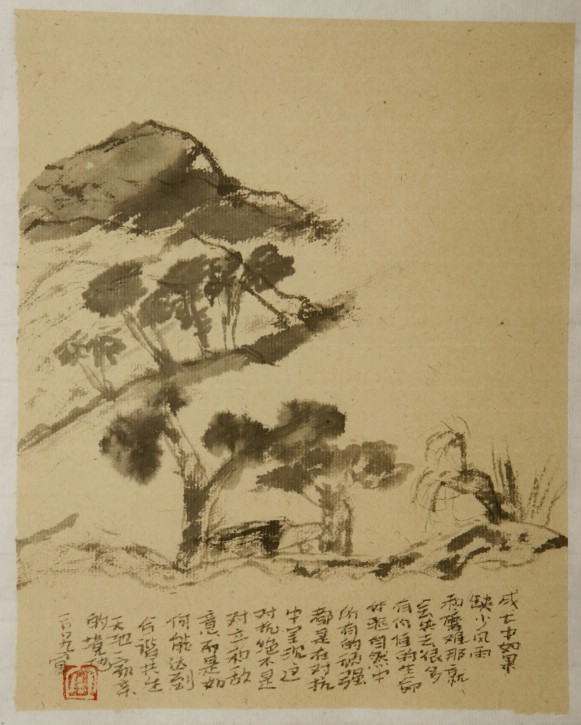 成长中如果
缺少风雨
和磨难那就
会失去很多
有价值的生命
自然中
所有的顽强
都是在对抗
中呈现这
对抗绝不是
对立和敌
意而是如
何能达到
合谐共生
天地一家亲
的境地